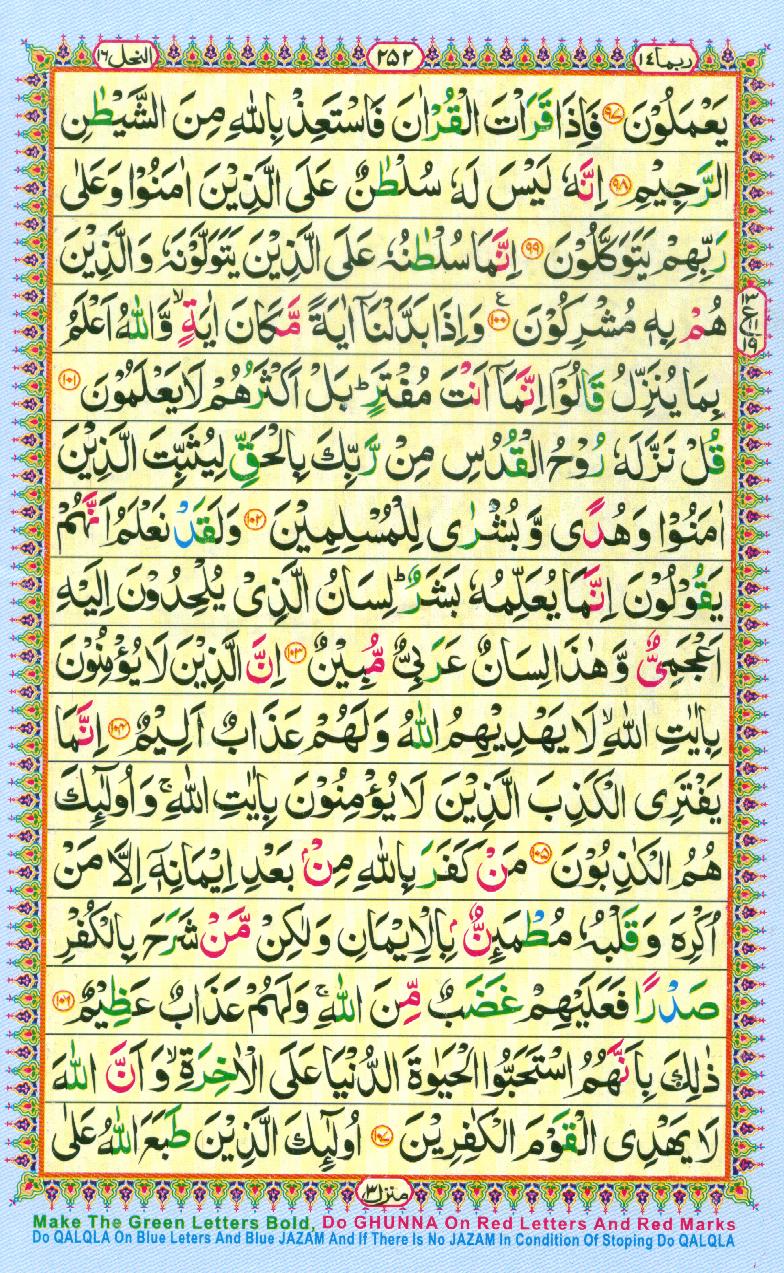 ربما ١٤
٢٥٢
النحل ١٦
يَعْمَلُوْنَ ﴿۹۷﴾ فَاِذَا قَرَاْتَ الْقُرْاٰنَ فَاسْتَعِذْ بِاللّٰهِ مِنَ الشَّيْطٰنِ
الرَّجِيْمِ ﴿۹۸﴾ اِنَّهٗ لَيْسَ لَهٗ سُلْطٰنٌ عَلَى الَّذِيْنَ اٰمَنُوْا وَعَلٰى
رَبِّهِمْ يَتَوَكَّلُوْنَ ﴿۹۹﴾ اِنَّمَا سُلْطٰنُهٗ عَلَى الَّذِيْنَ يَتَوَلَّوْنَهٗ وَالَّذِيْنَ
هُمْ بِهٖ مُشْرِكُوْنَ ﴿۱۰۰﴾ ع وَاِذَا بَدَّلْنَاۤ اٰيَةً مَّكَانَ اٰيَةٍ ۙ وَّاللّٰهُ اَعْلَمُ
بِمَا يُنَزِّلُ قَالُوْۤا اِنَّمَاۤ اَنْتَ مُفْتَرٍ ؕ بَلْ اَكْثَرُهُمْ لَا يَعْلَمُوْنَ ﴿۱۰۱﴾
قُلْ نَزَّلَهٗ رُوْحُ الْقُدُسِ مِنْ رَّبِّكَ بِالْحَقِّ لِيُثَبِّتَ الَّذِيْنَ
اٰمَنُوْا وَهُدًى وَّ بُشْرٰى لِلْمُسْلِمِيْنَ ﴿۱۰۲﴾ وَلَقَدْ نَعْلَمُ اَنَّهُمْ
يَقُوْلُوْنَ اِنَّمَا يُعَلِّمُهٗ بَشَرٌ ؕ لِسَانُ الَّذِيْ يُلْحِدُوْنَ اِلَيْهِ
اَعْجَمِيٌّ وَّ هٰذَا لِسَانٌ عَرَبِيٌّ مُّبِيْنٌ ﴿۱۰۳﴾ اِنَّ الَّذِيْنَ لَا يُؤْمِنُوْنَ
بِاٰيٰتِ اللّٰهِ ۙ لَا يَهْدِيْهِمُ اللّٰهُ وَلَهُمْ عَذَابٌ اَلِيْمٌ ﴿۱۰۴﴾ اِنَّمَا
يَفْتَرِى الْكَذِبَ الَّذِيْنَ لَا يُؤْمِنُوْنَ بِاٰيٰتِ اللّٰهِ ۚ وَاُولٰٓئِكَ
هُمُ الْكٰذِبُوْنَ ﴿۱۰۵﴾ مَنْ كَفَرَ بِاللّٰهِ مِنْۢ بَعْدِ اِيْمَانِهٖۤ اِلَّا مَنْ
اُكْرِهَ وَقَلْبُهٗ مُطْمَئِنٌّۢ بِالْاِيْمَانِ وَلٰكِنْ مَّنْ شَرَحَ بِالْكُفْرِ
صَدْرًا فَعَلَيْهِمْ غَضَبٌ مِّنَ اللّٰهِ ۚ وَلَهُمْ عَذَابٌ عَظِيْمٌ ﴿۱۰۶﴾
ذٰلِكَ بِاَنَّهُمُ اسْتَحَبُّوا الْحَيٰوةَ الدُّنْيَا عَلَى الْاٰخِرَةِ ۙ وَ اَنَّ اللّٰهَ
لَا يَهْدِى الْقَوْمَ الْكٰفِرِيْنَ ﴿۱۰۷﴾ اُولٰٓئِكَ الَّذِيْنَ طَبَعَ اللّٰهُ عَلٰى
منزل ٣
Make The Green Letters Bold, Do GHUNNA On Red Letters And Red Marks
Do QALQLA On Blue Leters And Blue JAZAM And If There Is No JAZAM In Condition Of Stoping Do QALQLA